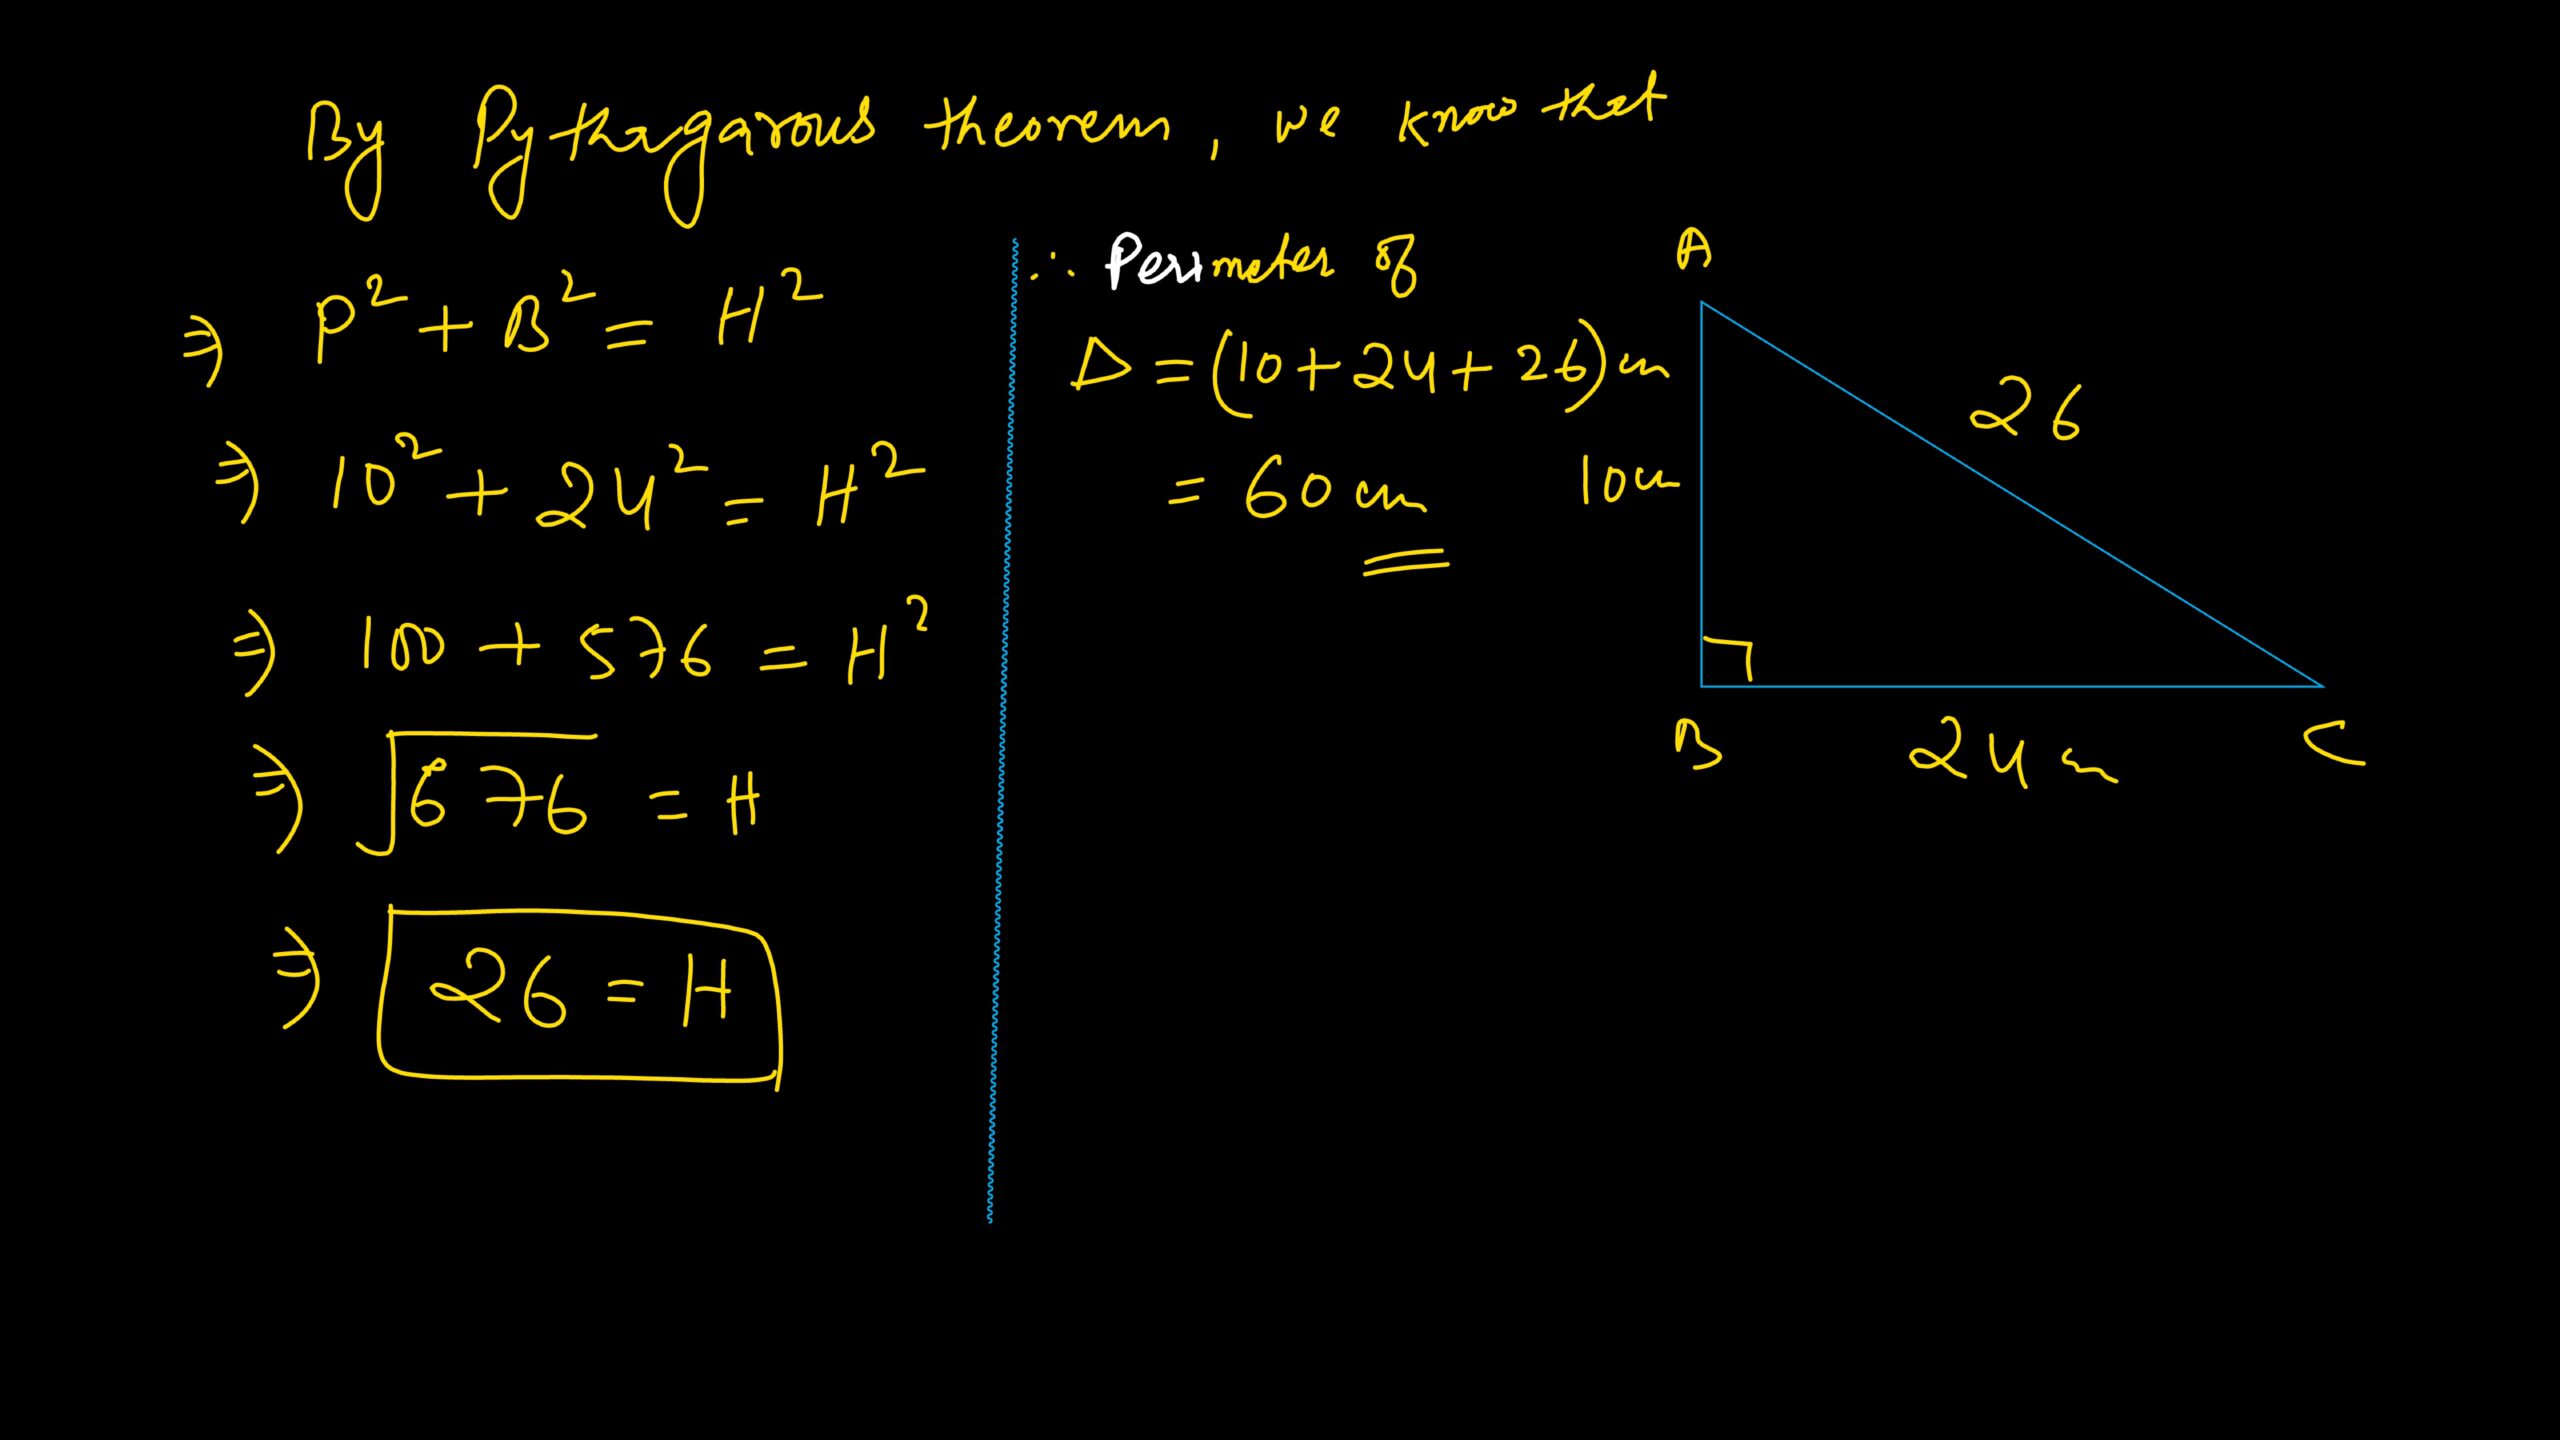 By Pythagarous theorem, we know that
⇒ P² + B² = H²
⇒ 10² + 24² = H²
⇒ 100 + 576 = H²
⇒ √676 = H
⇒ 26 = H
∴ Perimeter of
Δ = (10 + 24 + 26) cm
= 60 cm
A
26
10 cm
B 24 cm C